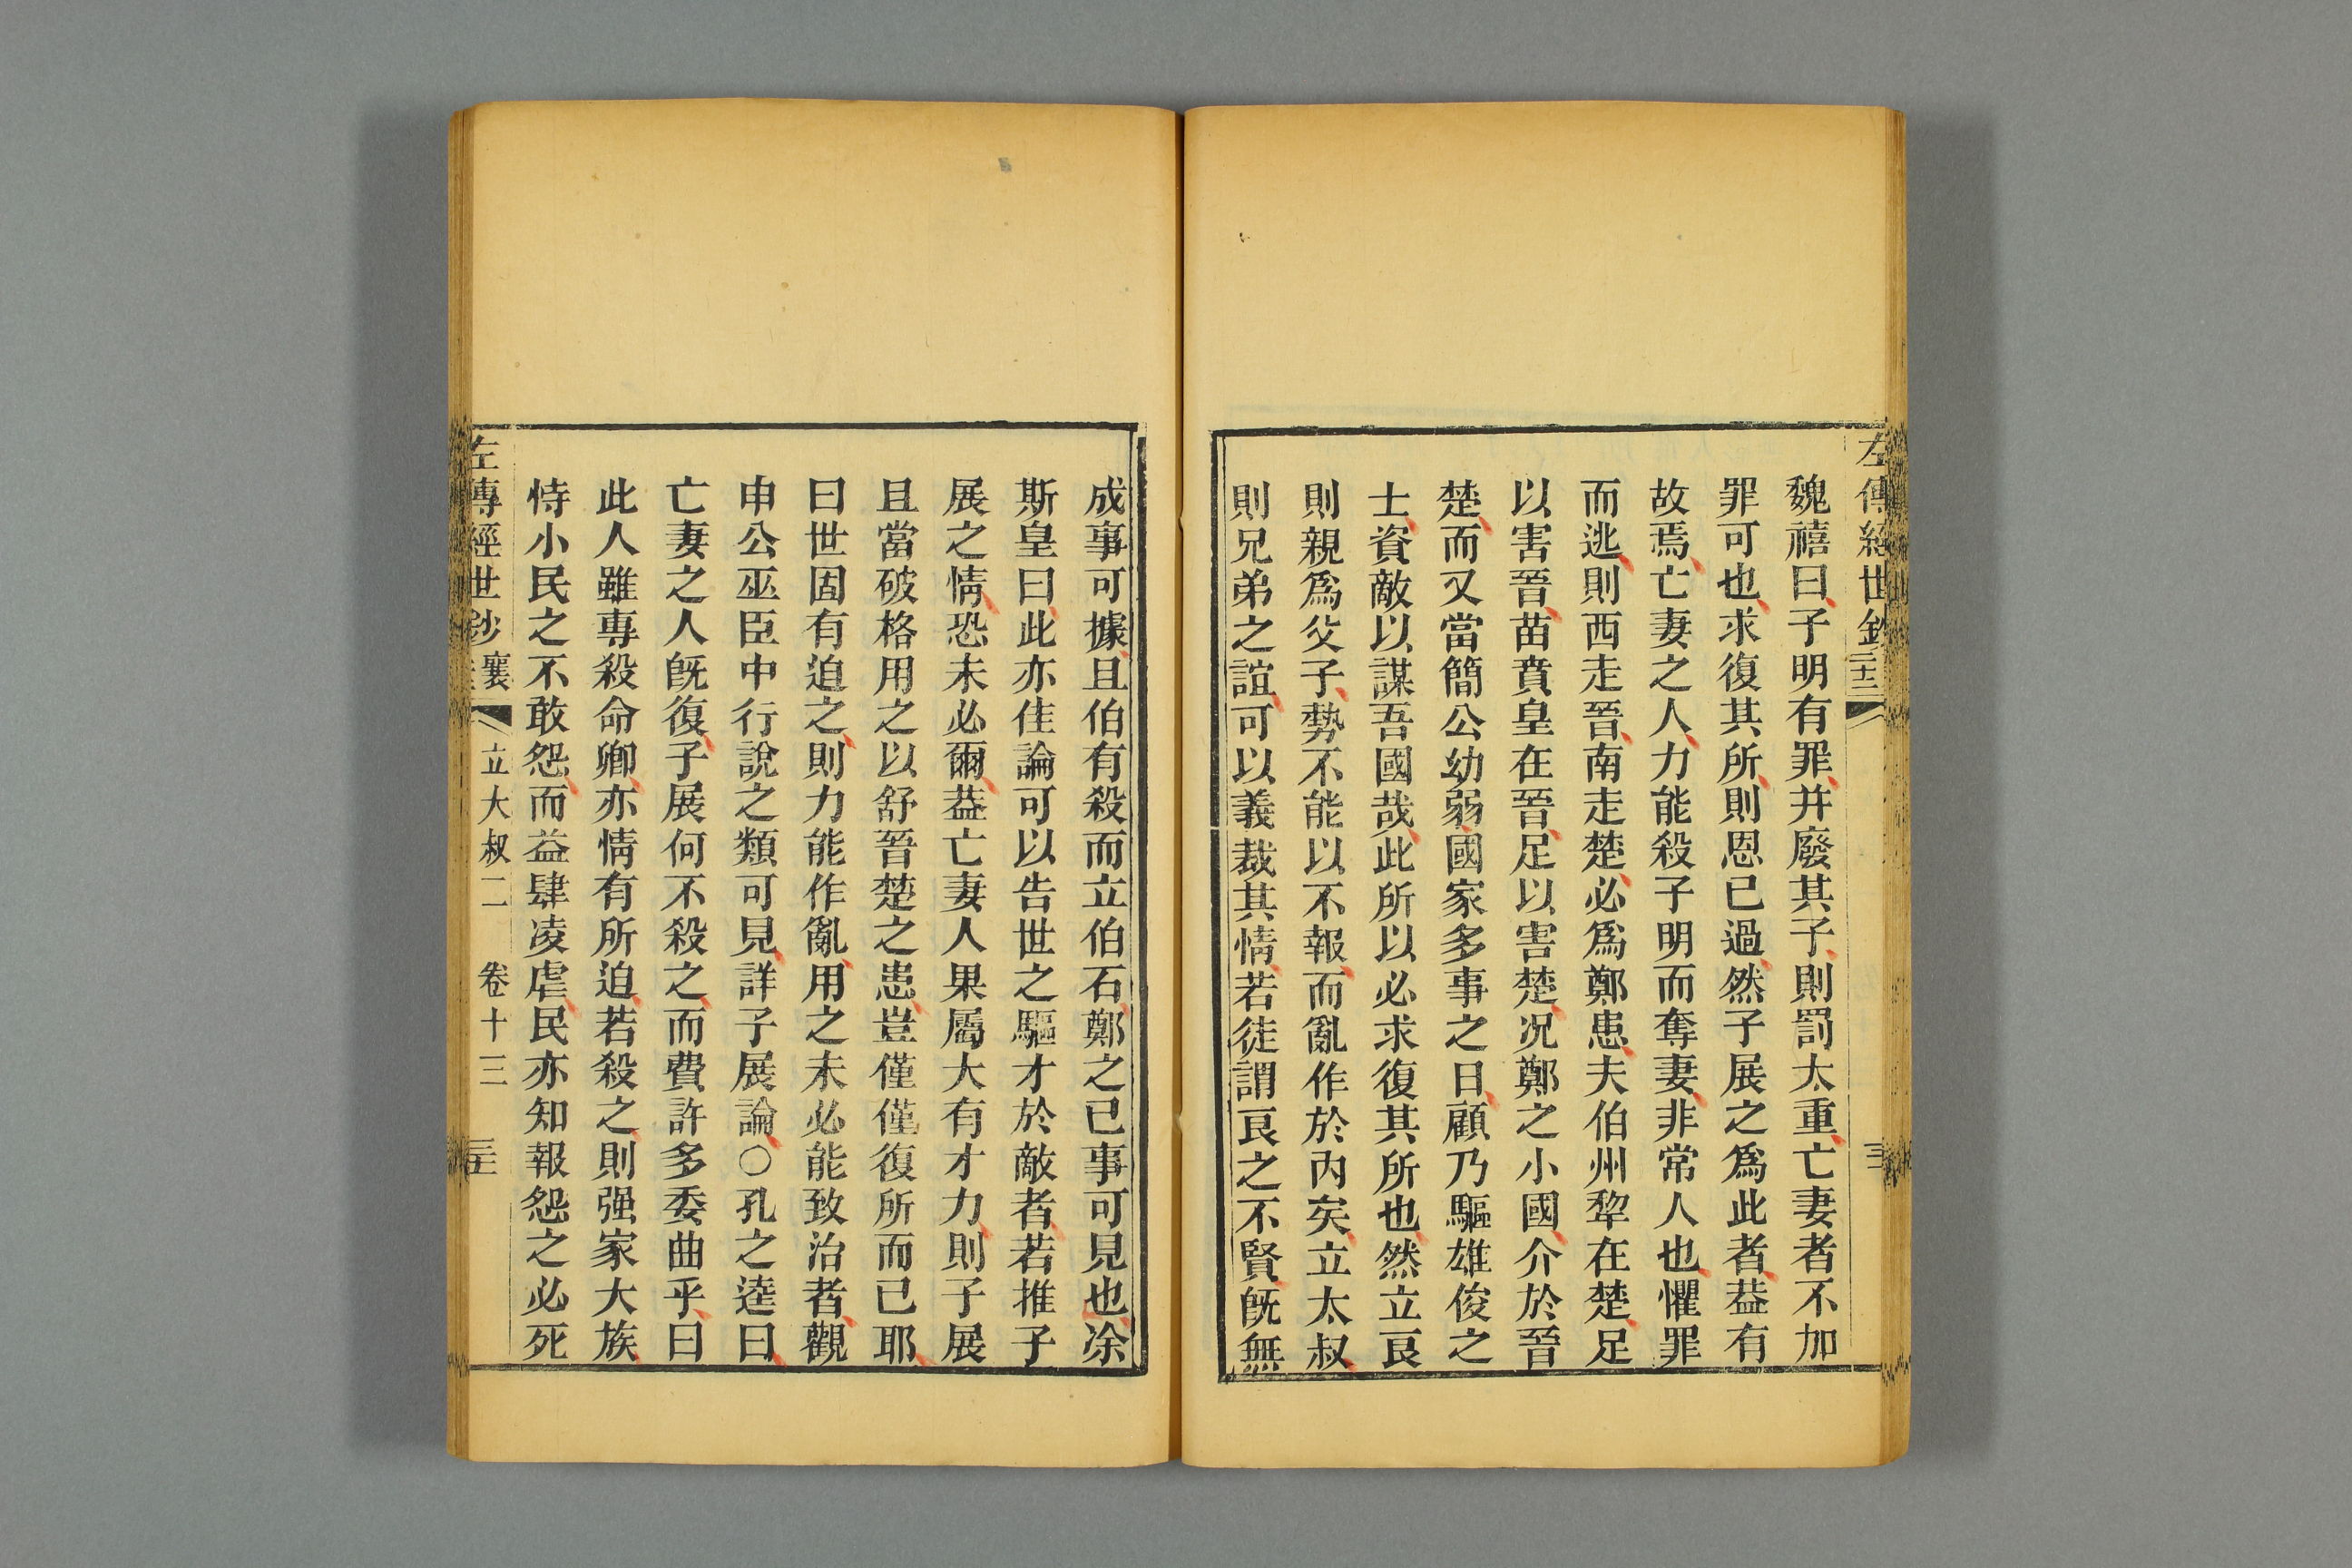 魏禧曰子明有罪并廢其子則罰太重亡妻者不加
罪可也求復其所則恩已過然子展之爲此者葢有
故焉亡妻之人力能殺子明而奪妻非常人也懼罪
而逃則西走晉南走楚必爲鄭患夫伯州犂在楚足
以害晉苗賁皇在晉足以害楚况鄭之小國介於晉
楚而又當簡公幼弱國家多事之日顧乃驅雄俊之
士資敵以謀吾國哉此所以必求復其所也然立良
則親爲父子勢不能以不報而亂作於內矣立太叔
則兄弟之誼可以義裁其情若徒謂良之不賢旣無
成事可據且伯有殺而立伯石鄭之已事可見也凃
斯皇曰此亦佳論可以告世之驅才於敵者若推子
展之情恐未必爾葢亡妻人果屬大有才力則子展
且當破格用之以舒晉楚之患豈僅僅復所而已耶
曰世固有迫之則力能作亂用之未必能致治者觀
申公巫臣中行說之類可見詳子展論○孔之逵曰
亡妻之人旣復子展何不殺之而費許多委曲乎曰
此人雖專殺命卿亦情有所迫若殺之則强家大族
恃小民之不敢怨而益肆凌虐民亦知報怨之必死
左傳經世鈔 襄 立大叔二 卷十三